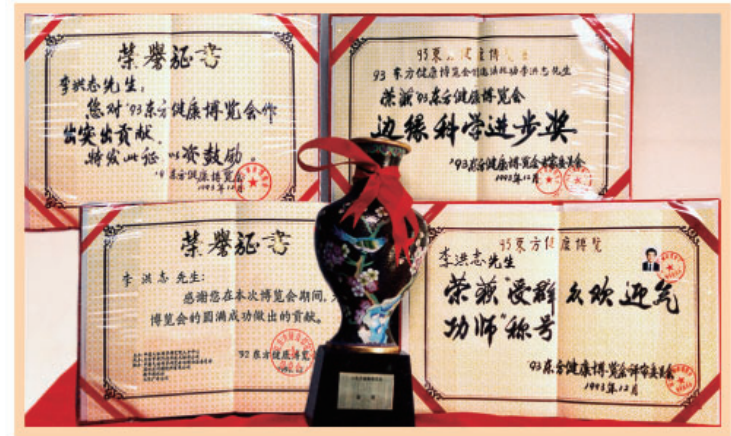 荣誉证书
李洪志先生:
您对'93东方健康博览会作
出突出贡献,
特发此证以资鼓励。
东方健康博览会
1993年12月
93东方健康博览
93东方健康博览会
李洪志先生
荣获'93东方健康博览会
边缘科学进步奖
'93东方健康博览会评审委员会
1993年12月
荣誉证书
李洪志先生:
感谢您在本次博览会期间,
博览会的圆满成功做出的贡献。
'92东方健康博览
93東方健康博览
李洪志先生
荣获"受群众欢迎气
功师"称号
'93东方健康博览会评审委员会
1993年12月